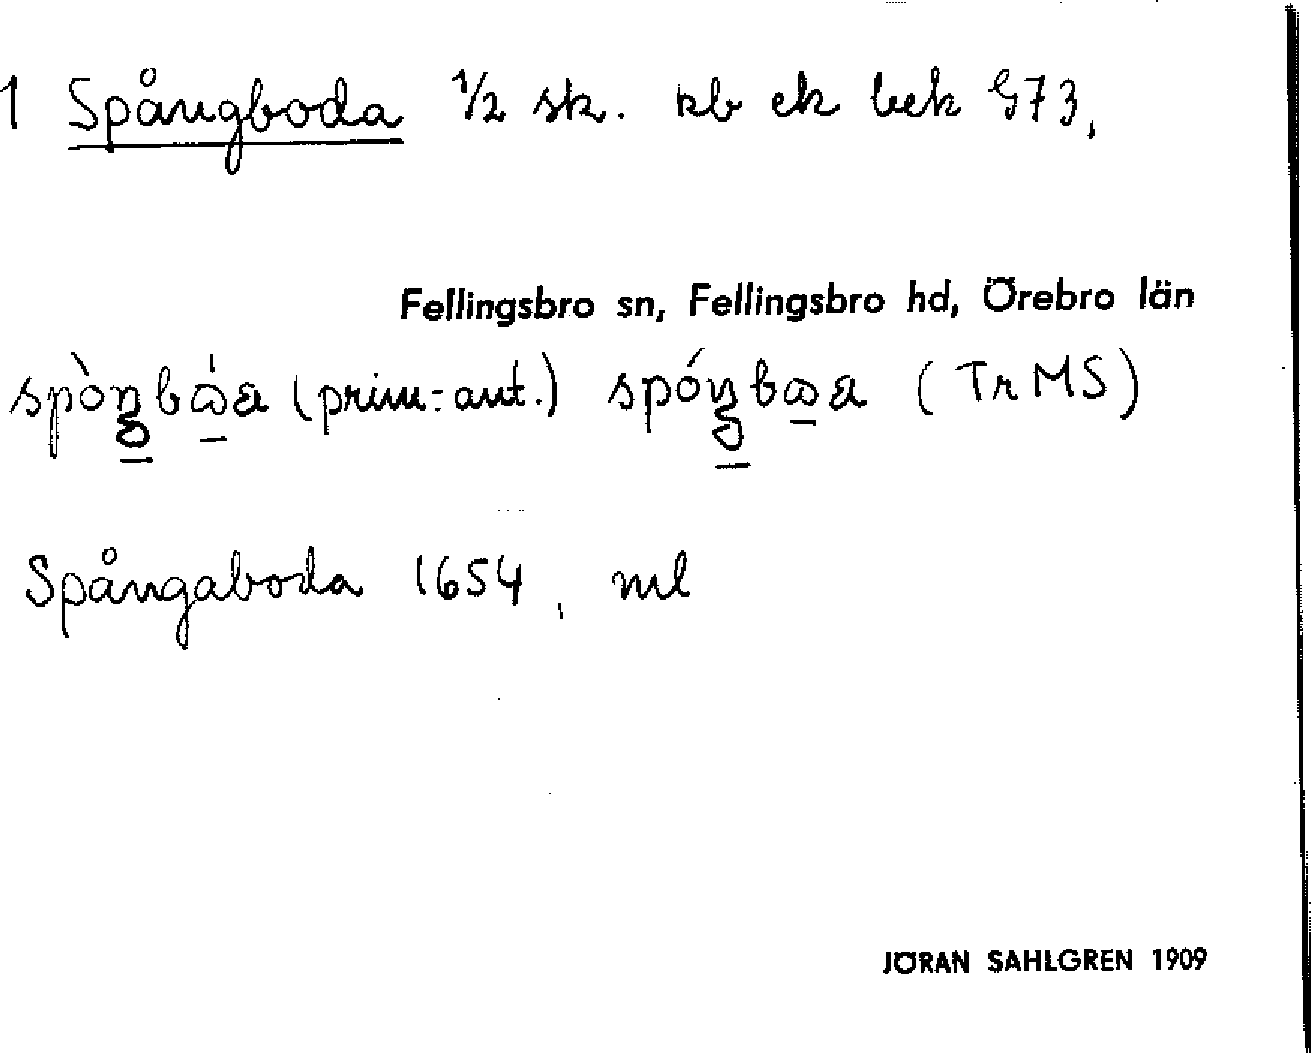 1 Spångboda ½ sk. rb ek bek 973,
Fellingsbro sn, Fellingsbro hd, Örebro län
(prim.-ant.) (TrMS)
Spångaboda 1654, ml
JÖRAN SAHLGREN 1909